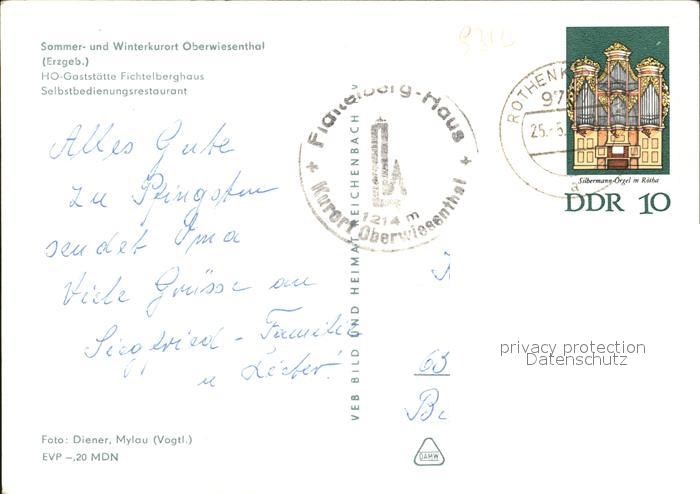 Sommer- und Winterkurort Oberwiesenthal
(Erzgeb.)
HO-Gaststätte Fichtelberghaus
Selbstbedienungsrestaurant
Alles Gute
zu Pfingsten
sendet Oma
Viele Grüsse an
Siegfried - Familie
u
Foto: Diener, Mylau (Vogtl.)
EVP -,20 MDN
VEB BILD UND HEIMAT REICHENBACH
Fichtelberg-Haus
1214 m
Kurort Oberwiesenthal
25.-5.
Silbermann-Orgel in Rötha
DDR 10
privacy protection
Datenschutz
63
DAMW